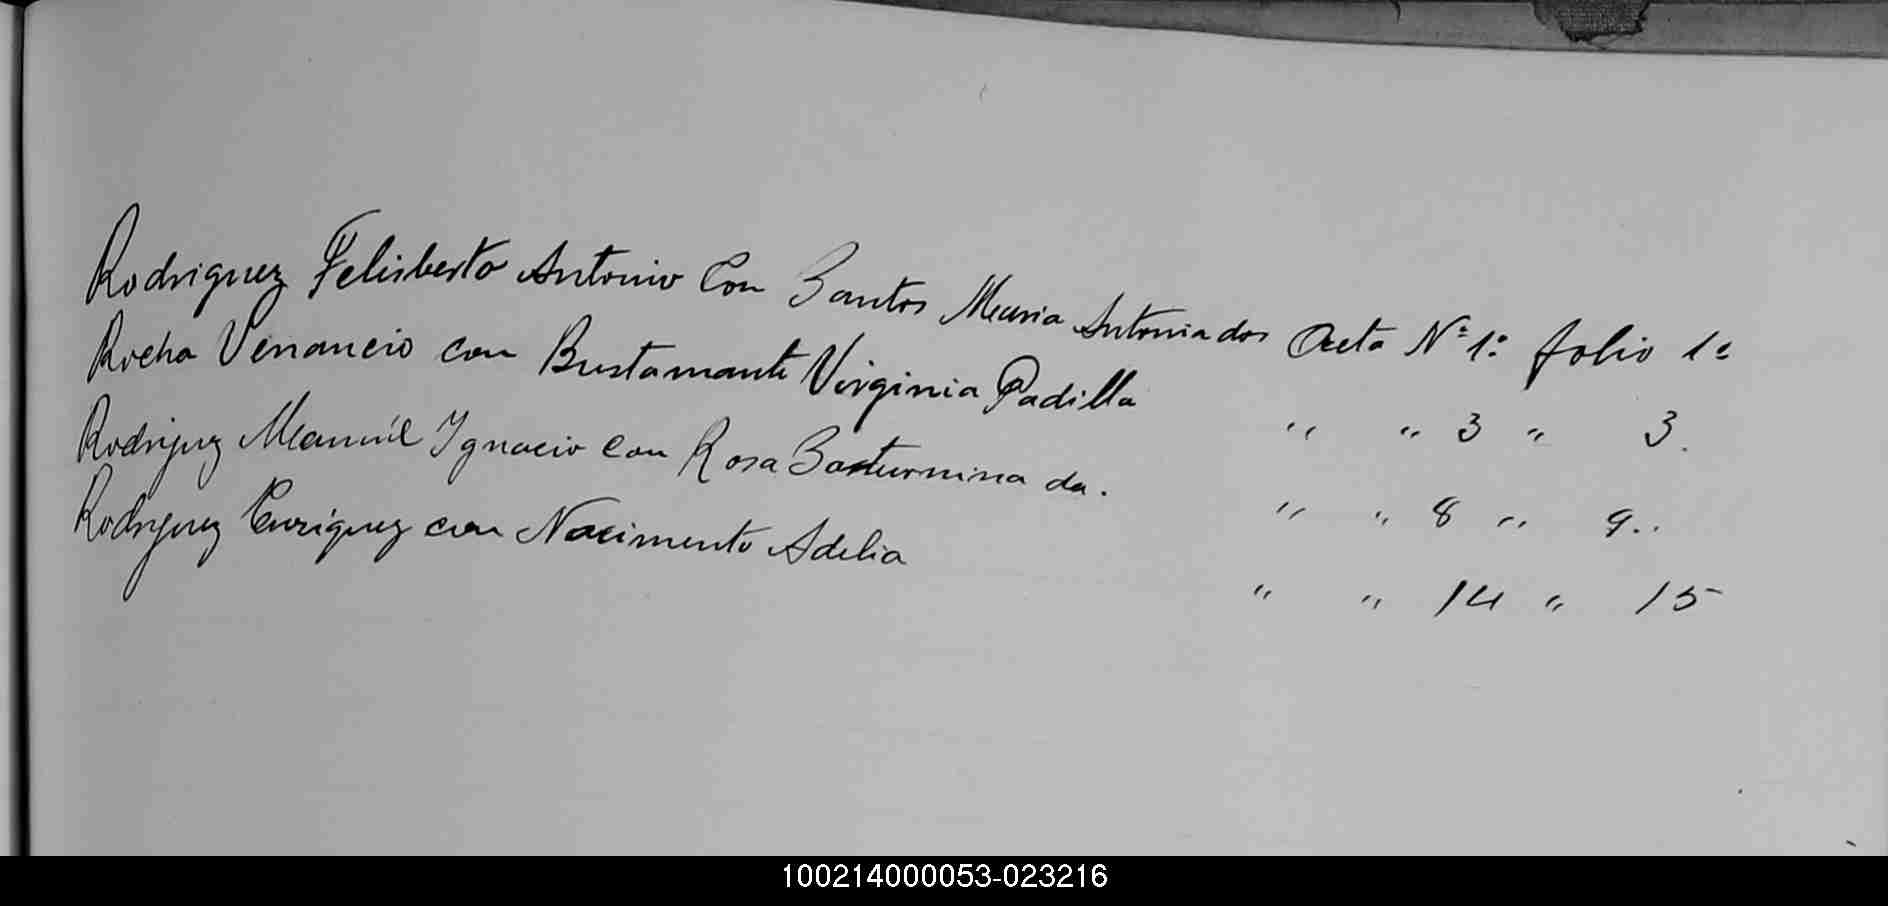 Rodriguez Felisberto Antonio Con Santos Maria Antonia dos Acta Nº 1º folio 1º
Rocha Venancio con Bustamante Virginia Padilla " " 3 " 3.
Rodriguez Manuel Ignacio con Rosa Saturnina da. " " 8 " 9..
Rodriguez Enriquez con Nacimento Adelia " " 14 " 15
100214000053-023216